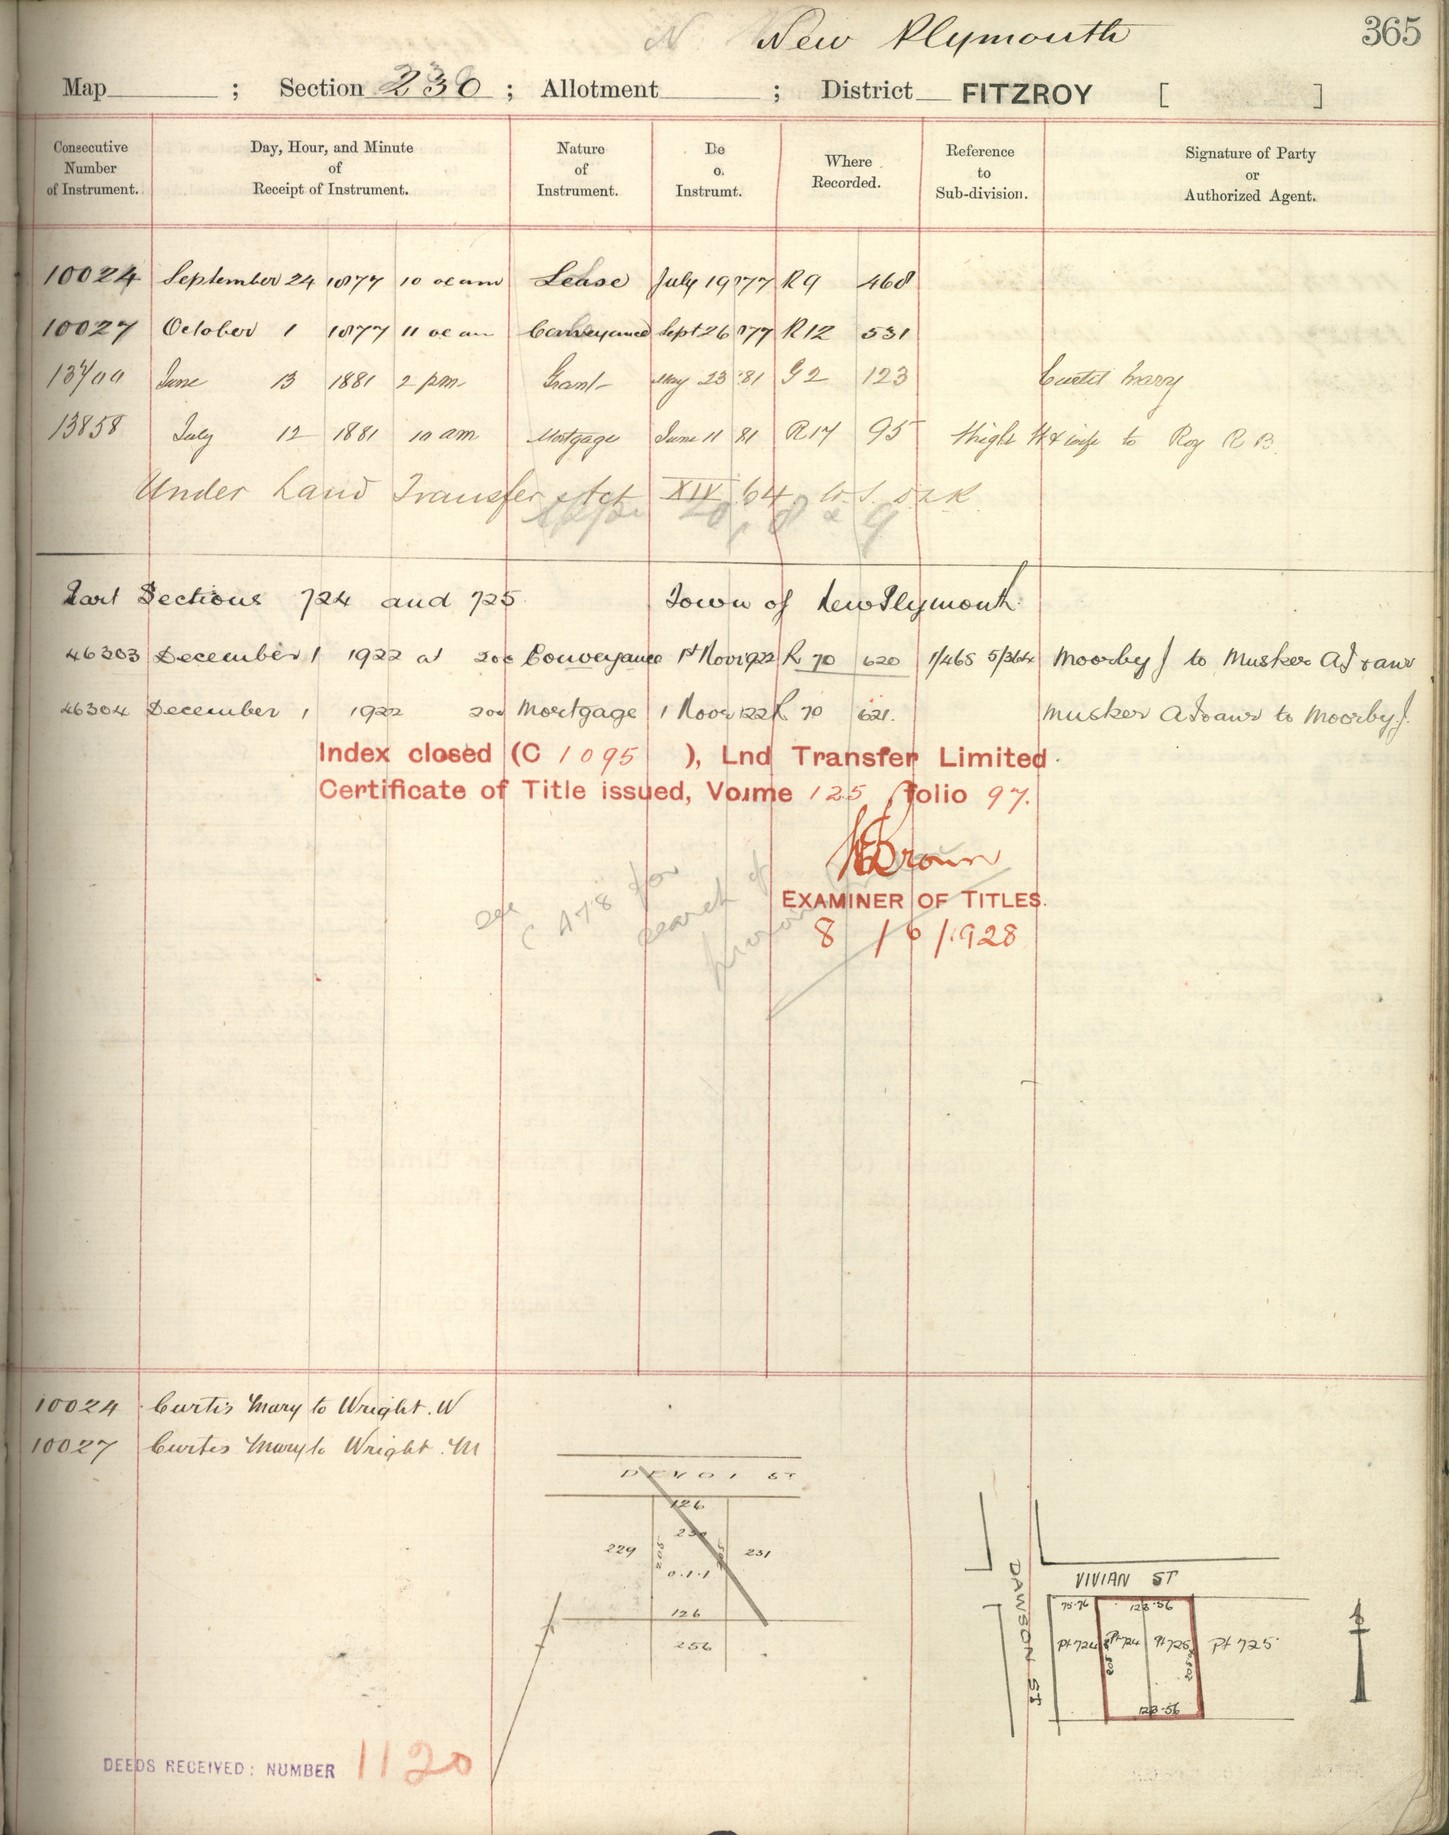 New Plymouth 365
Map ; Section 230 ; Allotment ; District FITZROY [ ]
Consecutive Number of Instrument. Day, Hour, and Minute of Receipt of Instrument. Nature of Instrument. De o. Instrumt. Where Recorded. Reference to Sub-division. Signature of Party or Authorized Agent.
10024 September 24 1877 10 oc am Lease July 19 '77 R9 468
10027 October 1 1877 11 oc am Conveyance Sept 26 '77 R12 531
13700 June 13 1881 2 pm Grant May 23 '81 G2 123 Curtis Mary
13858 July 12 1881 10 am Mortgage June 11 81 R17 95 to Roy R B.
Under Land Transfer Act XIV 64
Part Sections 724 and 725 Town of New Plymouth
46303 December 1 1922 at 200 Conveyance 1st Nov 1922 R 70 620 1/465 5/364 Moorby J to Musker A J & anr
46304 December 1 1922 200 Mortgage 1 Nov 1922 R 70 621. Musker A J & anr to Moorby J.
Index closed (C 1095 ), Lnd Transfer Limited
Certificate of Title issued, Voume 125, folio 97.
Brown
see C 478 for
search of
EXAMINER OF TITLES.
8 / 6 / 1928
10024 Curtis Mary to Wright. W
10027 Curtis Mary to Wright. M
DEVON ST
126
229 205 230 205 231
0.1.1
126
256
DAWSON ST
VIVIAN ST
75.76 123.56
Pt 724 Pt 724 Pt 725 Pt 725
205 205
123.56
DEEDS RECEIVED: NUMBER 1120